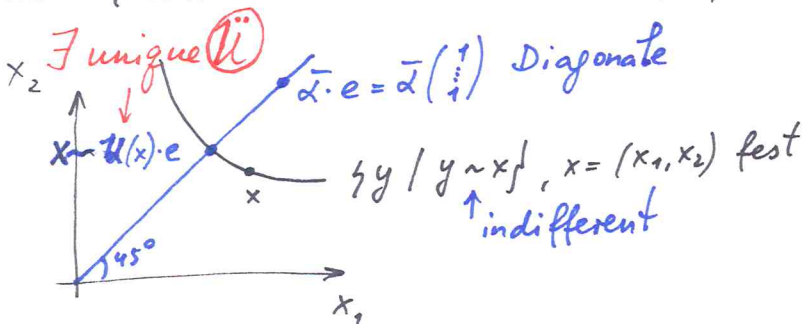 ∃ unique Ü
x₂
ᾱ·e = ᾱ(1⋮1) Diagonale
x ~ u(x)·e
{y / y ~ x}, x = (x₁, x₂) fest
x
indifferent
45°
x₁